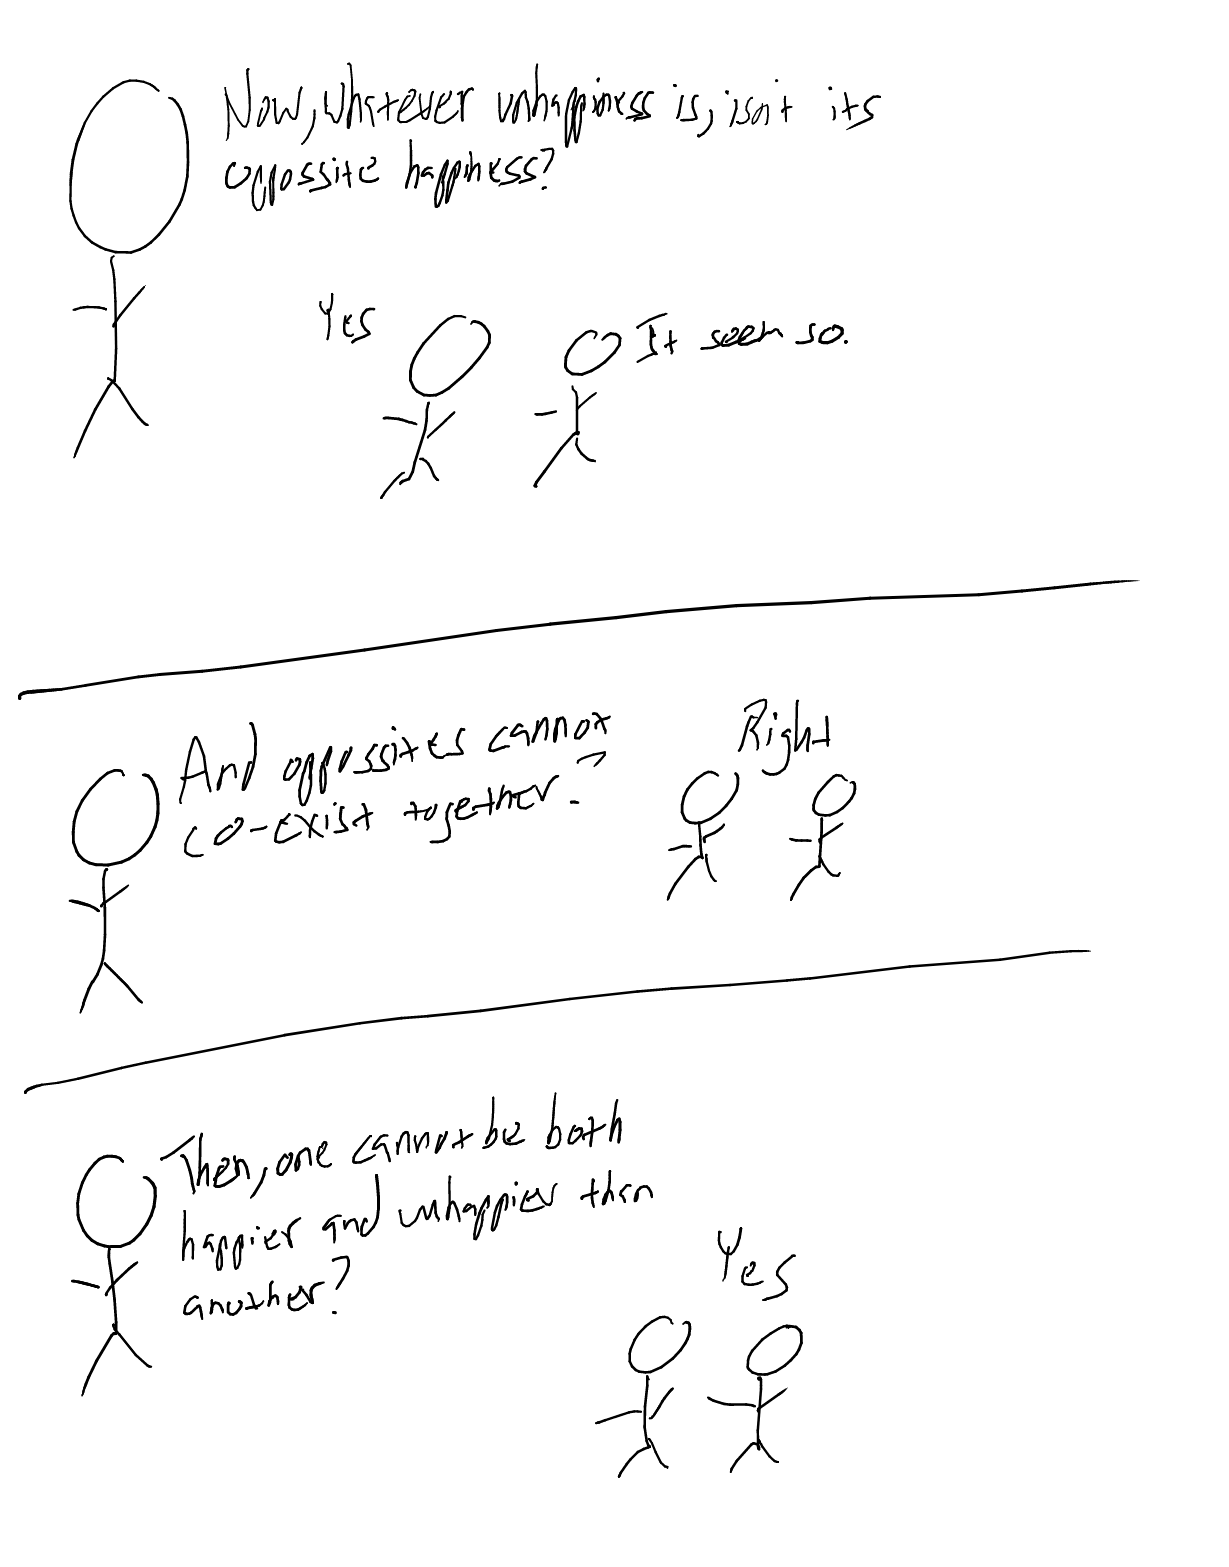 Now, whatever unhappiness is, isn't its
oppossite happiness?
Yes
It seem so.
And oppossites cannot
co-exist together?
Right
Then, one cannot be both
happier and unhappier than
another?
Yes